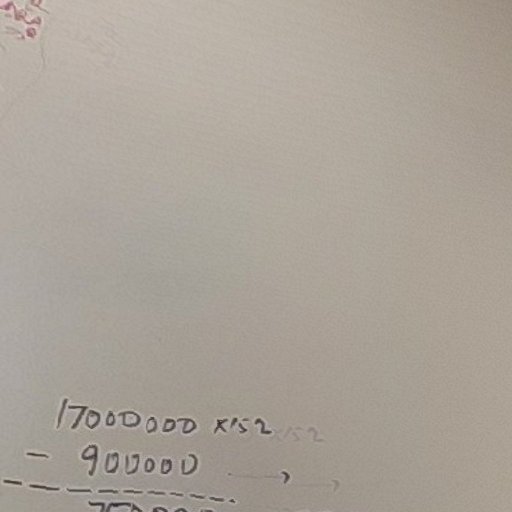 17000000 x152
- 900000 →